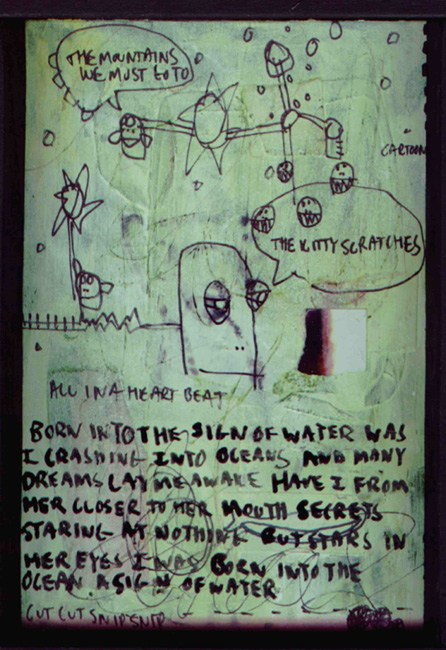 THE MOUNTAINS
WE MUST GO TO
CARTOON
THE KITTY SCRATCHES
ALL IN A HEART BEAT
BORN INTO THE SIGN OF WATER WAS
I CRASHING INTO OCEANS AND MANY
DREAMS LAY ME AWAKE HAVE I FROM
HER CLOSER TO HER MOUTH SECRETS
STARING AT NOTHING BUT STARS IN
HER EYES I WAS BORN INTO THE
OCEAN A SIGN OF WATER
CUT CUT SNIP SNIP